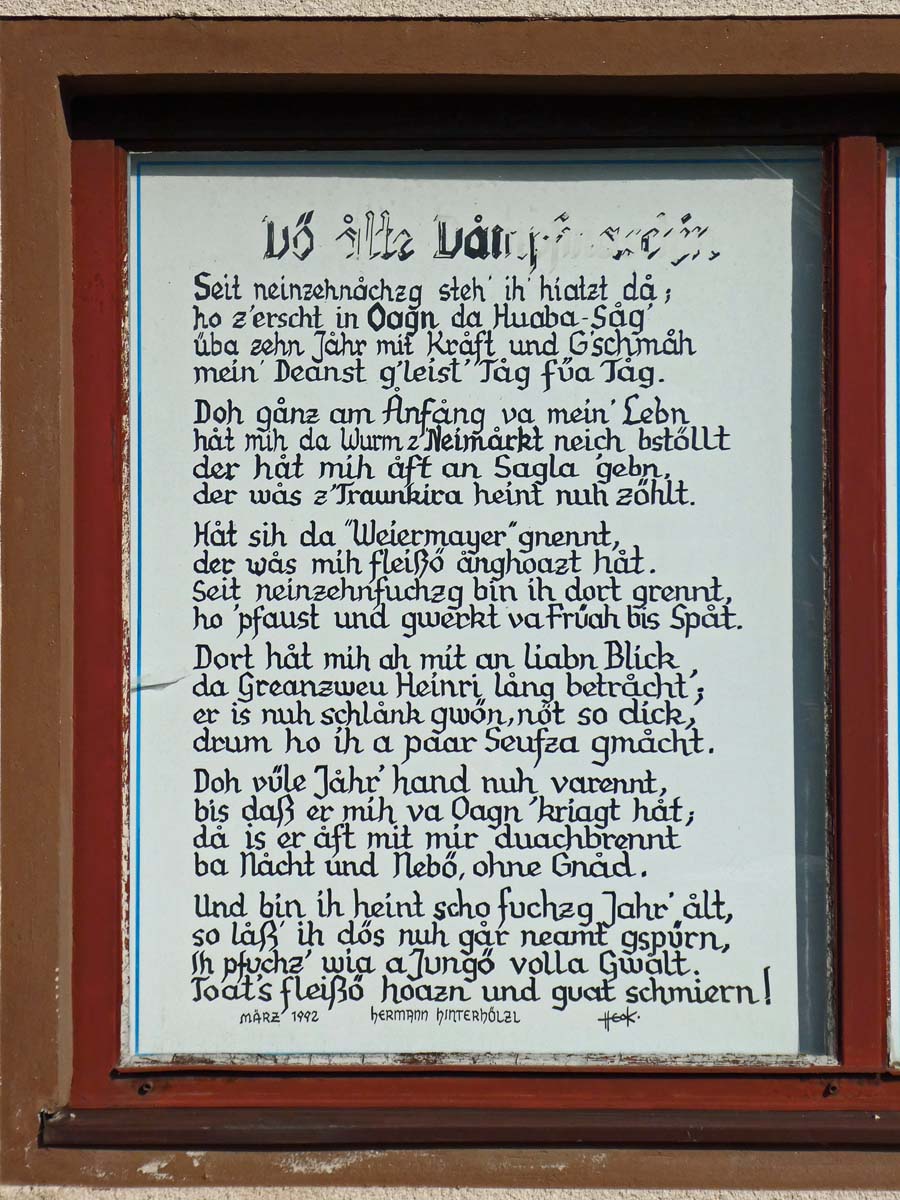 Dö ålte
Seit neinzehnåchzg steh' ih' hiatzt då;
ho z'erscht in Oagn da Huaba-Såg'
üba zehn Jåhr mit Kråft und G'schmåh
mein' Deanst g'leist' Tåg füa Tåg.
Doh gånz am Ånfång va mein' Lebn
håt mih da Wurm z'Neimårkt neich bstöllt
der håt mih åft an Sagla 'gebn,
der wås z'Traunkira heint nuh zöhlt.
Håt sih da "Weiermayer" gnennt,
der wås mih fleißö ånghoazt håt.
Seit neinzehnfuchzg bin ih dort grennt,
ho 'pfaust und gwerkt va Früah bis Spåt.
Dort håt mih ah mit an liabn Blick,
da Greanzweu Heinri lång betråcht';
er is nuh schlånk gwön, nöt so dick,
drum ho ih a påar Seufza gmåcht.
Doh vüle Jåhr' hand nuh varennt,
bis daß er mih va Oagn 'kriagt håt;
då is er åft mit mir duachbrennt
ba Nåcht und Nebö, ohne Gnåd.
Und bin ih heint scho fuchzg Jahr' ålt,
so låß' ih dös nuh går neamt gspürn,
Ih pfuchz' wia a Jungö volla Gwålt.
Toat's fleißö hoazn und guat schmiern!
MÄRZ 1992 HERMANN HINTERHÖLZL